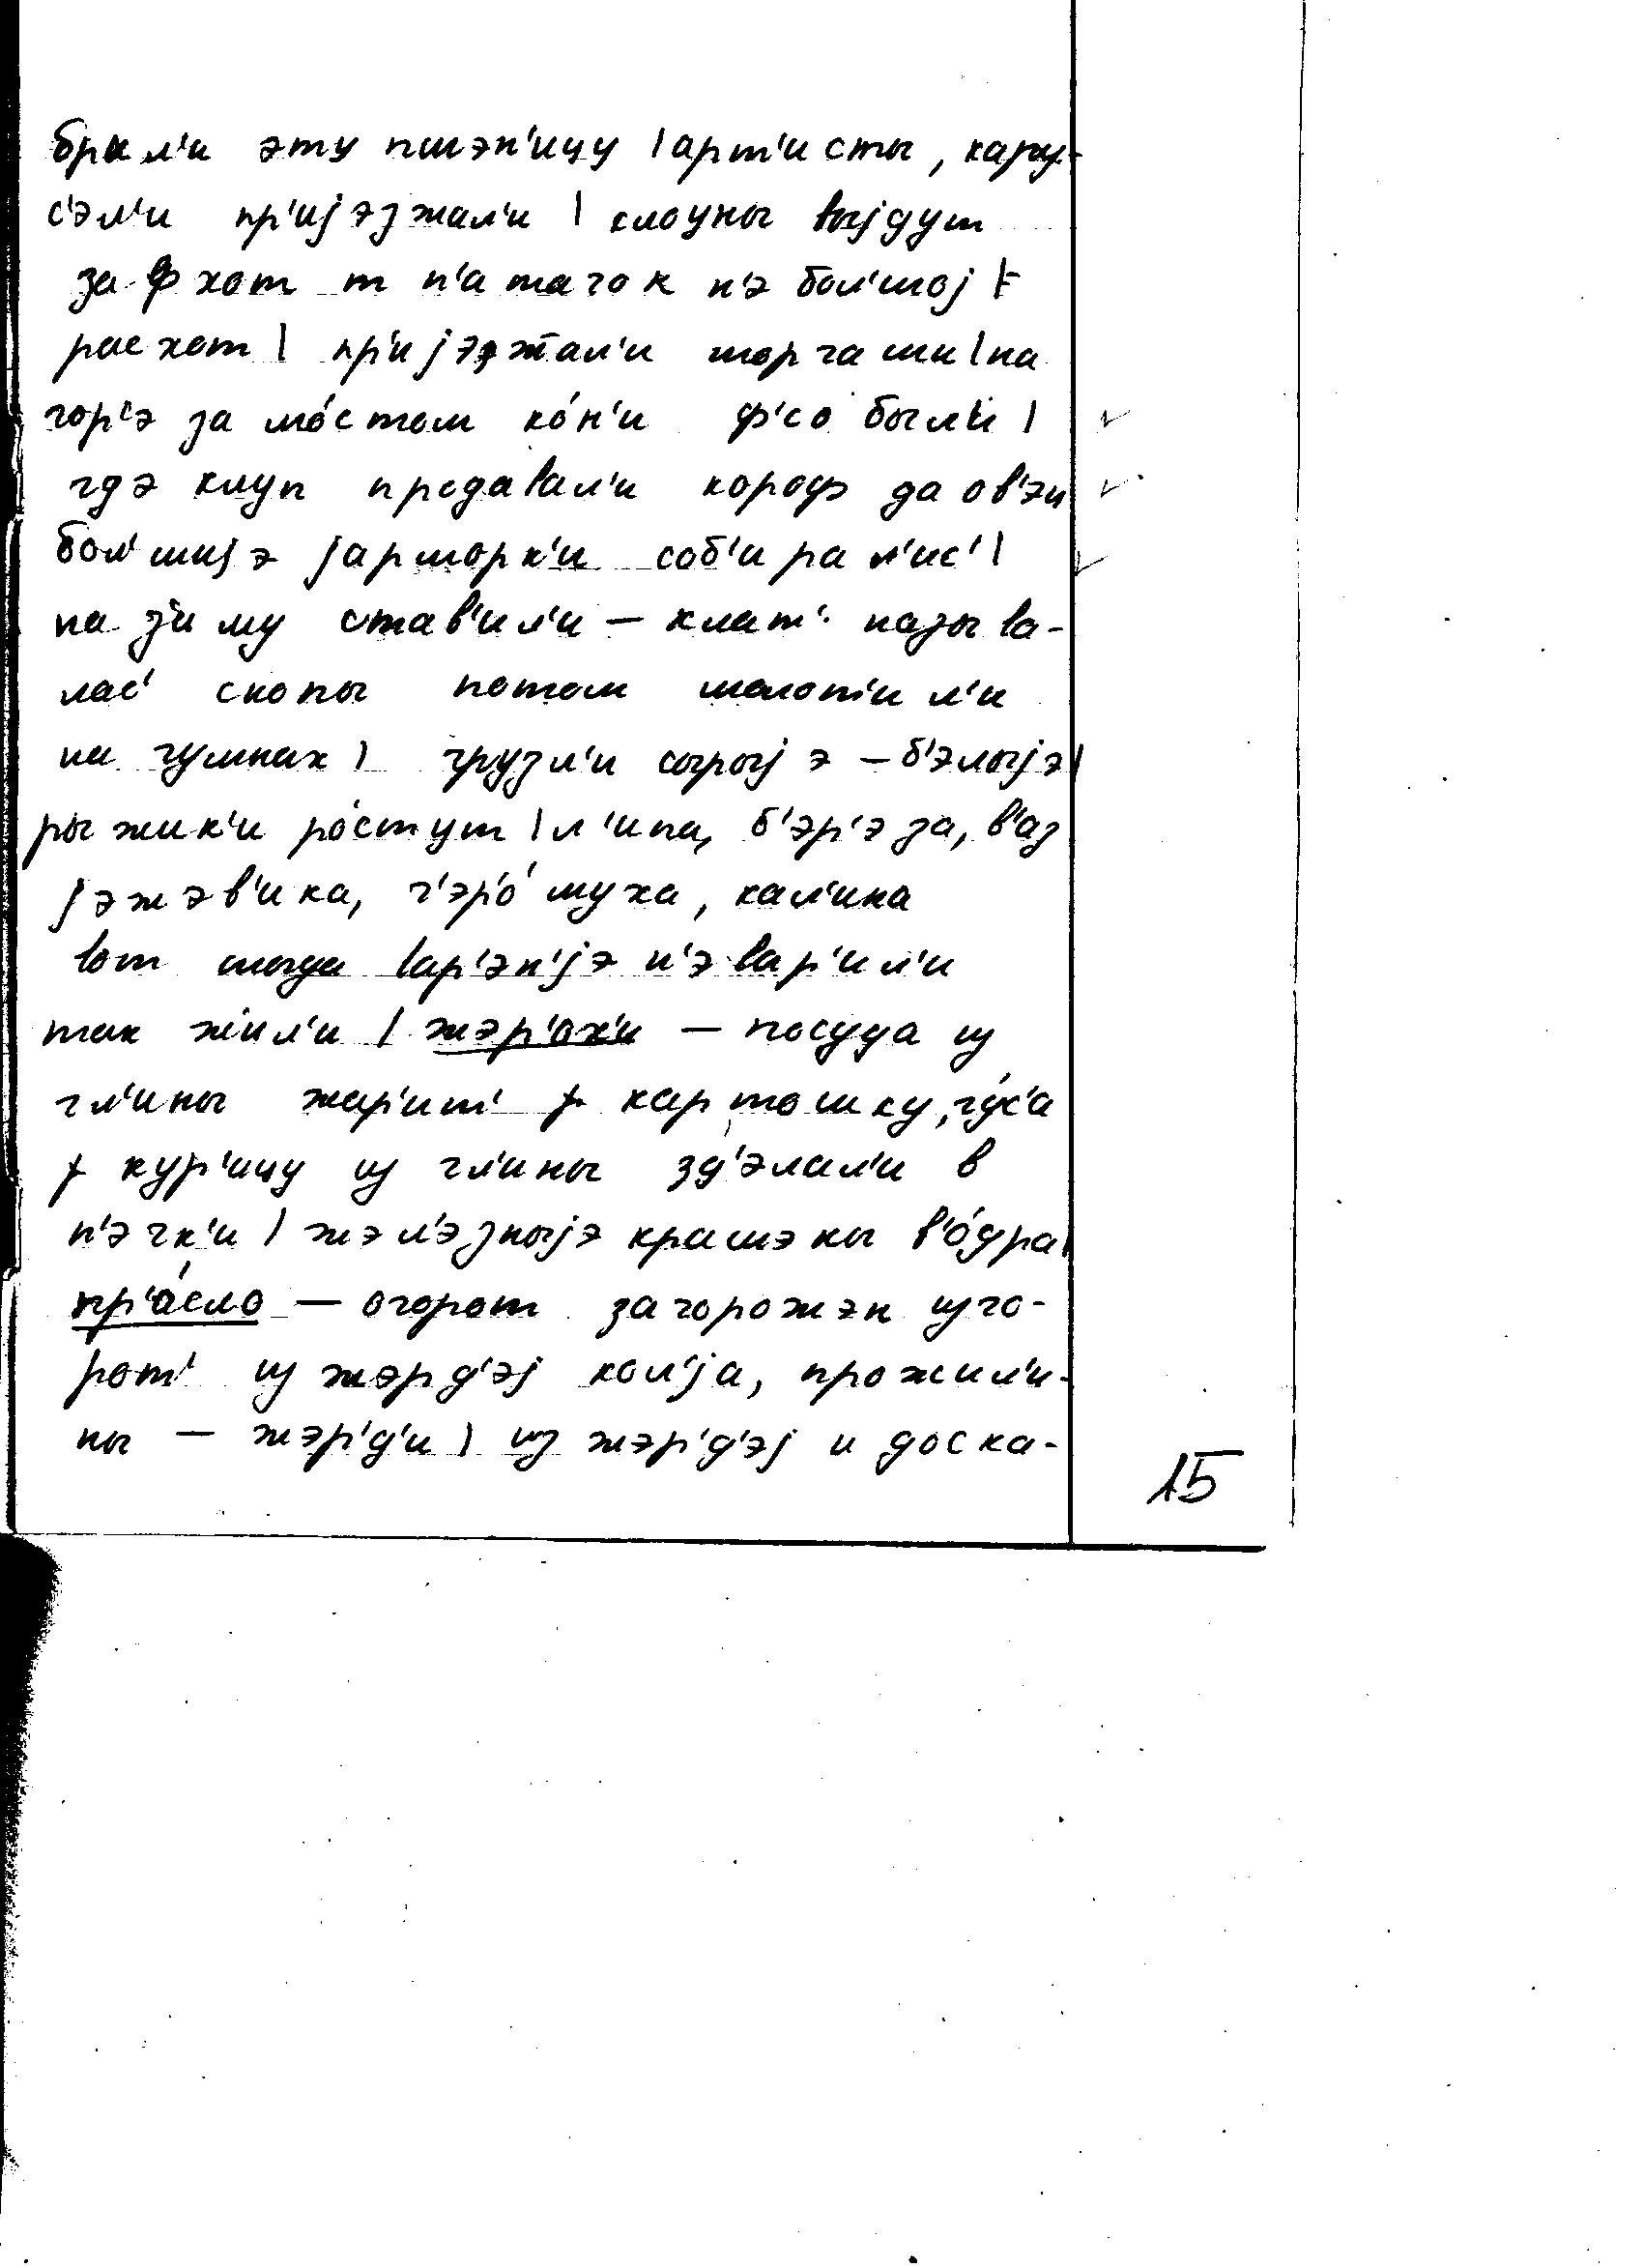 брал'и эту пшэн'ицу | арт'исты, кару-
с'эл'и пр'ијэзжал'и | клоуны выјдут
за фхот т п'атачок н'э бол'шој |
расхот | пр'ијэзжал'и торгаши | на
гор'э за мо́стом ко́н'и ф'с'о был'и |
гдэ клуп продавал'и короф да ов'эц
бол'шијэ јарморк'и соб'ирал'ис' |
на з'иму став'ил'и – клат' называ-
лас' снопы потом молот'ил'и
на гумнах | грузл'и сырыјэ – б'элыјэ |
рыжик'и ро́стут | л'ипа, б'эр'эза, в'аз
јэжэв'ика, ч'эр'о́муха, кал'ина
вот тогда вар'эн'јэ н'э вар'ил'и
так жил'и | жэр'охи – посуда из
гл'ины жар'ит' картошку, гу́с'а
кур'ицу из гл'ины зд'элал'и в
п'эчк'и | жэл'эзныјэ крашэны в'о́дра |
пр'а́сло – огорот загорожэн изго-
рот' из жэрд'эј кол'ја, прожил'и-
ны – жэр'д'и | из жэр'д'эј и доска-
15